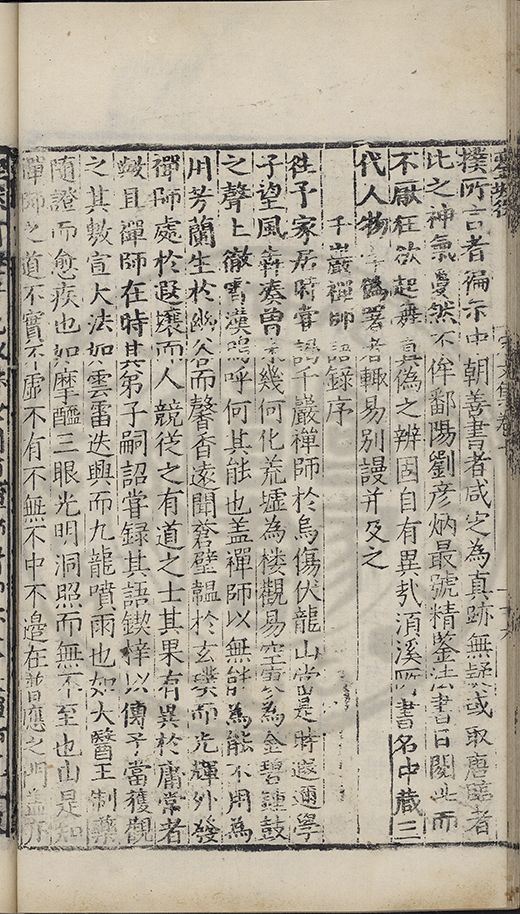 撲所言者徧示中朝善書者咸定為真跡無疑或取唐臨者
比之神氣敻然不侔鄱陽劉彥炳最號精鍳法書日閱此而
不厭狂欲起舞真偽之辨固自有異㢤湏溪所書名中蔵三
代人物字偽署者輙易別謾并及之
千巖禪師語録序
徃予家居時甞謁千巖禪師於烏傷伏龍山當是時遐邇學
子望風犇凑曽未幾何化荒墟為楼觀易空寂為金碧鍾鼓
之聲上徹霄漢嗚呼何其䏻也盖禪師以無䏻為䏻不用為
用芳蘭生於幽谷而馨香遠聞蒼璧韞於玄璞而光輝外發
禪師處於遐壤而人競従之有道之士其果有異於庸常者
㢤且禪師在時其弟子嗣詔甞録其語鍥梓以傳予當獲觀
之其敷宣大法如雲雷迭興而九龍噴雨也如大醫王制藥
隨證而愈疾也如摩醯三眼光明洞照而無不至也由是知
禪師之道不實不虛不有不無不中不邊在普應之門盖亦